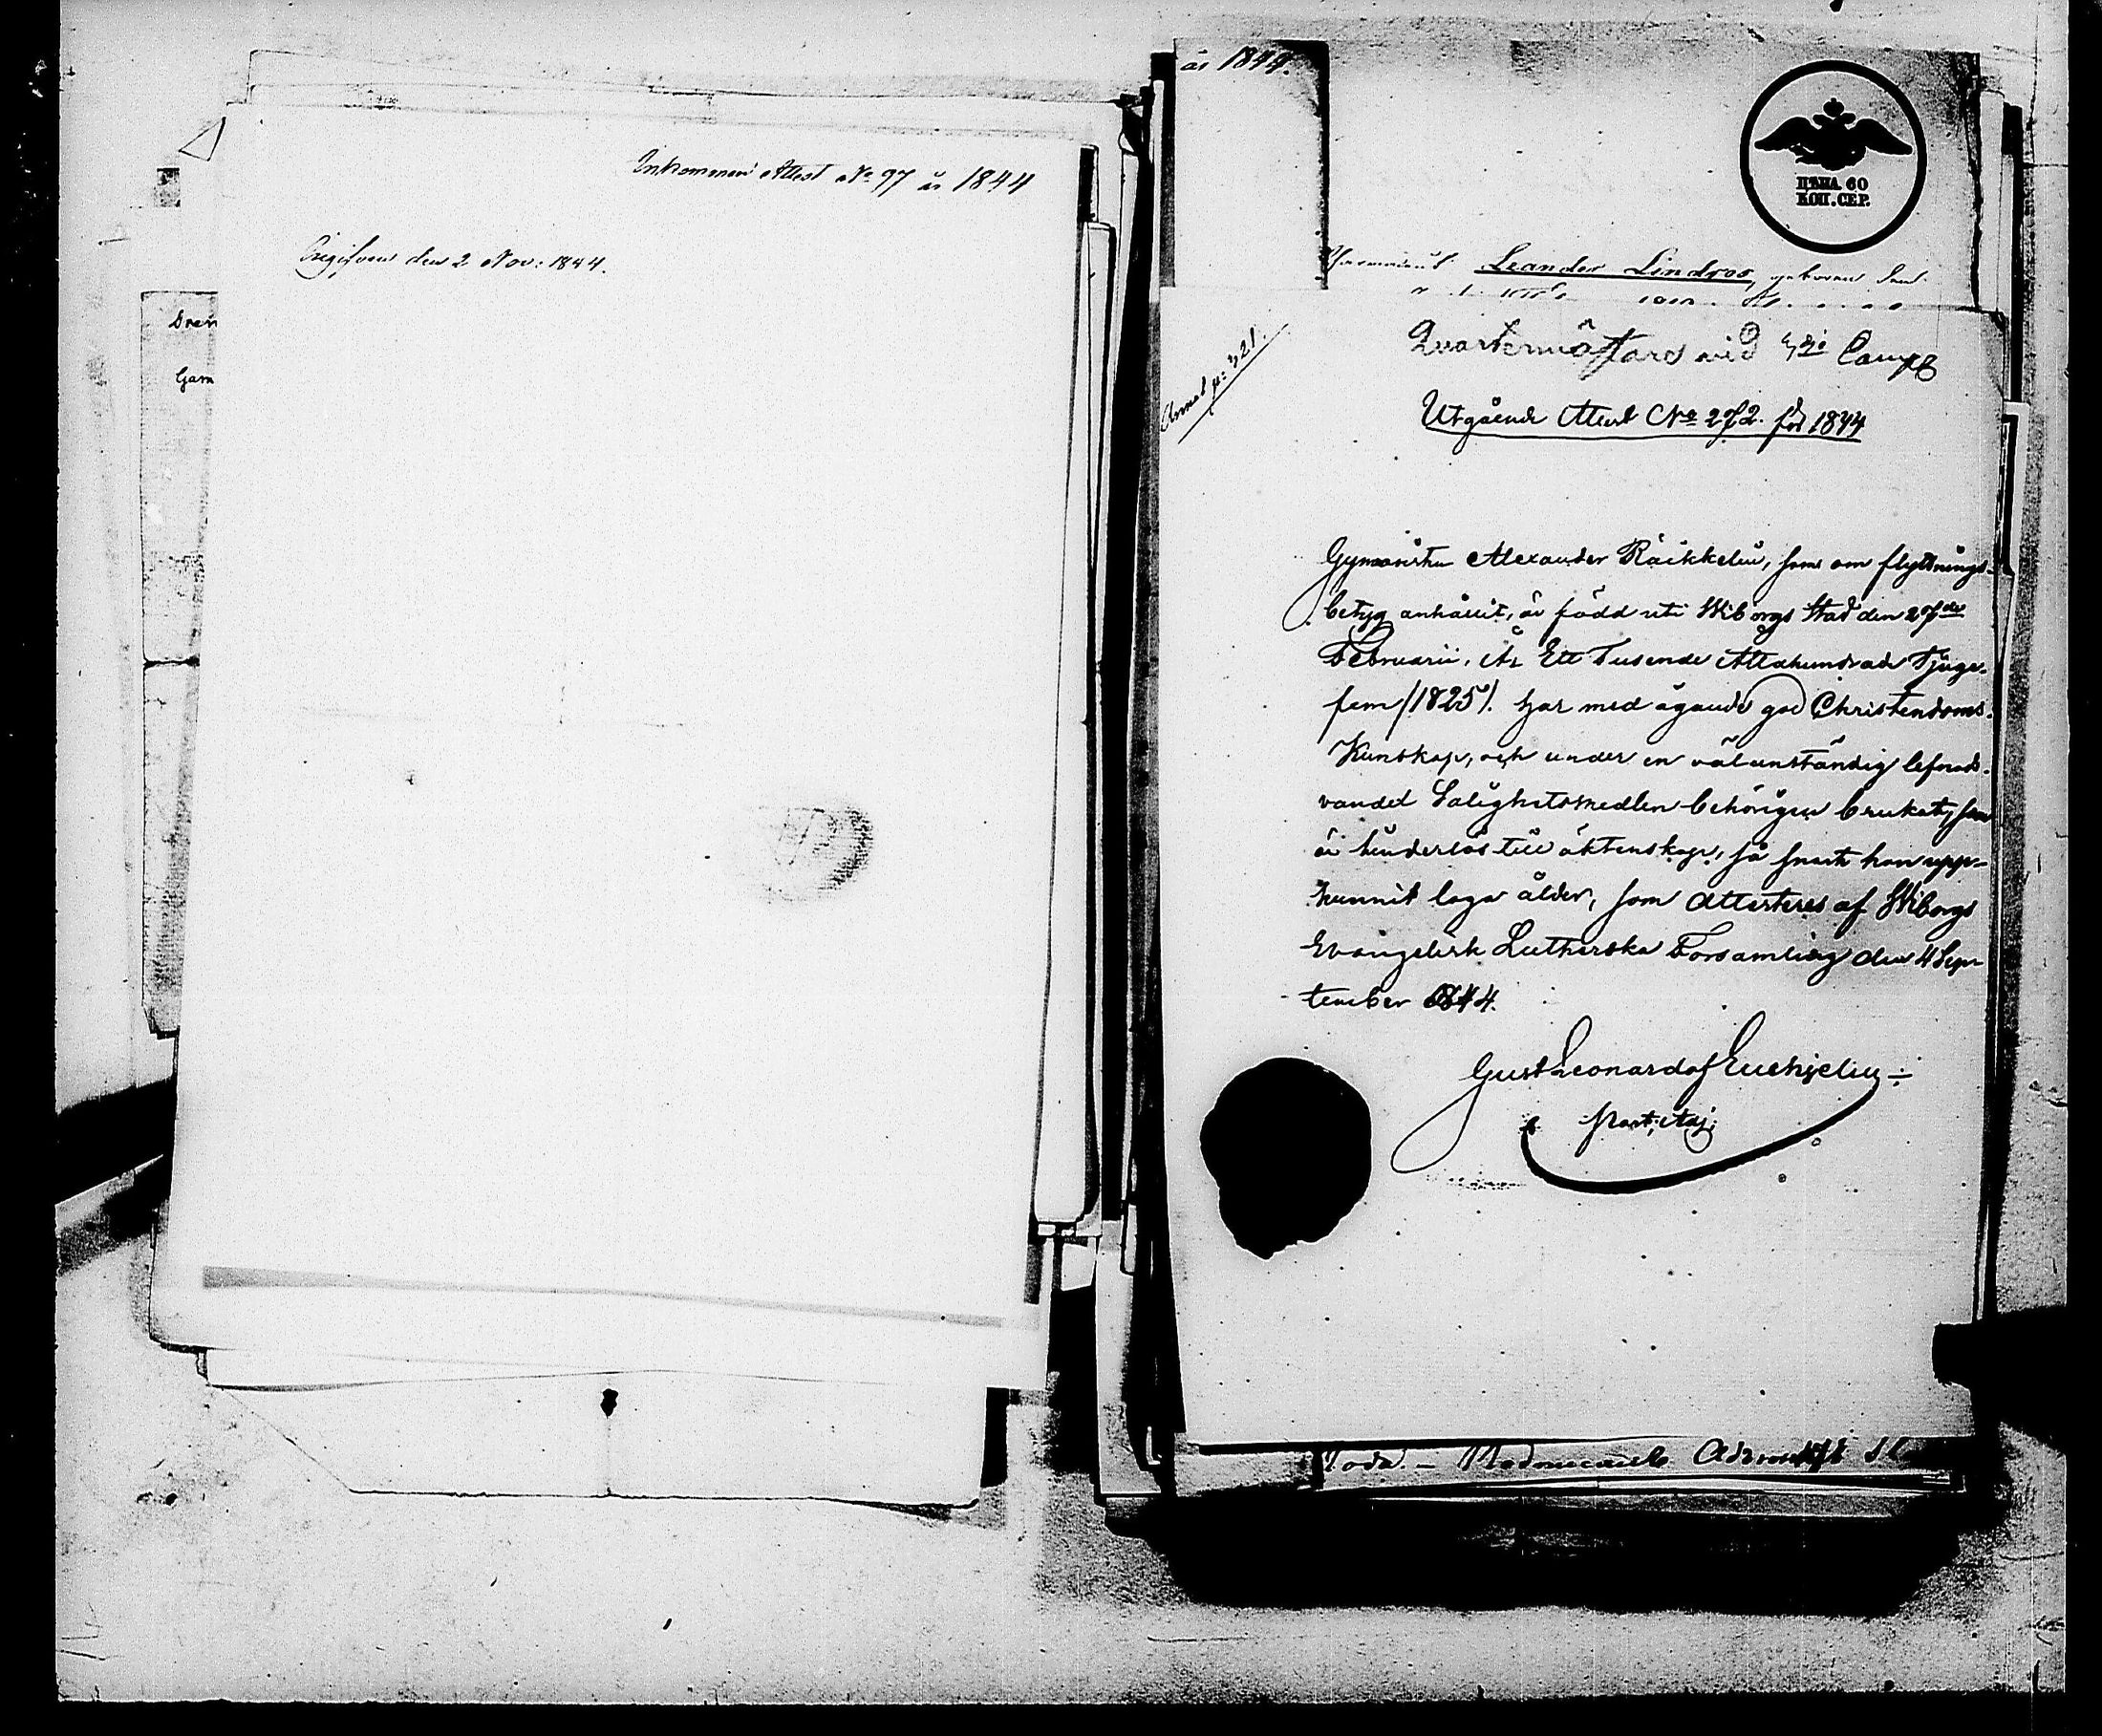 Inkommen Attest No 97 år 1844
Uppgifven den 2 Nov: 1844.
Gam
år 1844.
ЦѢНА 60
КОП. СЕР.
Leander Lindros, geboren den
Annot p: 321.
Quartermästare vid Camp
Utgående Attest No 272. för 1844
Gymnasisten Alexander Räikkelin, som om flyttnings-
betyg anhållit, är född uti Wiborgs Stad den 27de
Februarii, År Ett Tusende Attahundrade Tjuge-
fem /1825/. har med ägande god Christendoms-
Kunskap, och under en välanständig lefnads-
vandel Salighetsmedlen behörigen brukat, samt
är hinderlös till äktenskap, så snart han upp-
hunnit laga ålder, som Attesteres af Wiborgs
Evangelisk Lutherska Församling den 4 Sep-
tember 1844.
Gust Leonard af
Past; Adj: